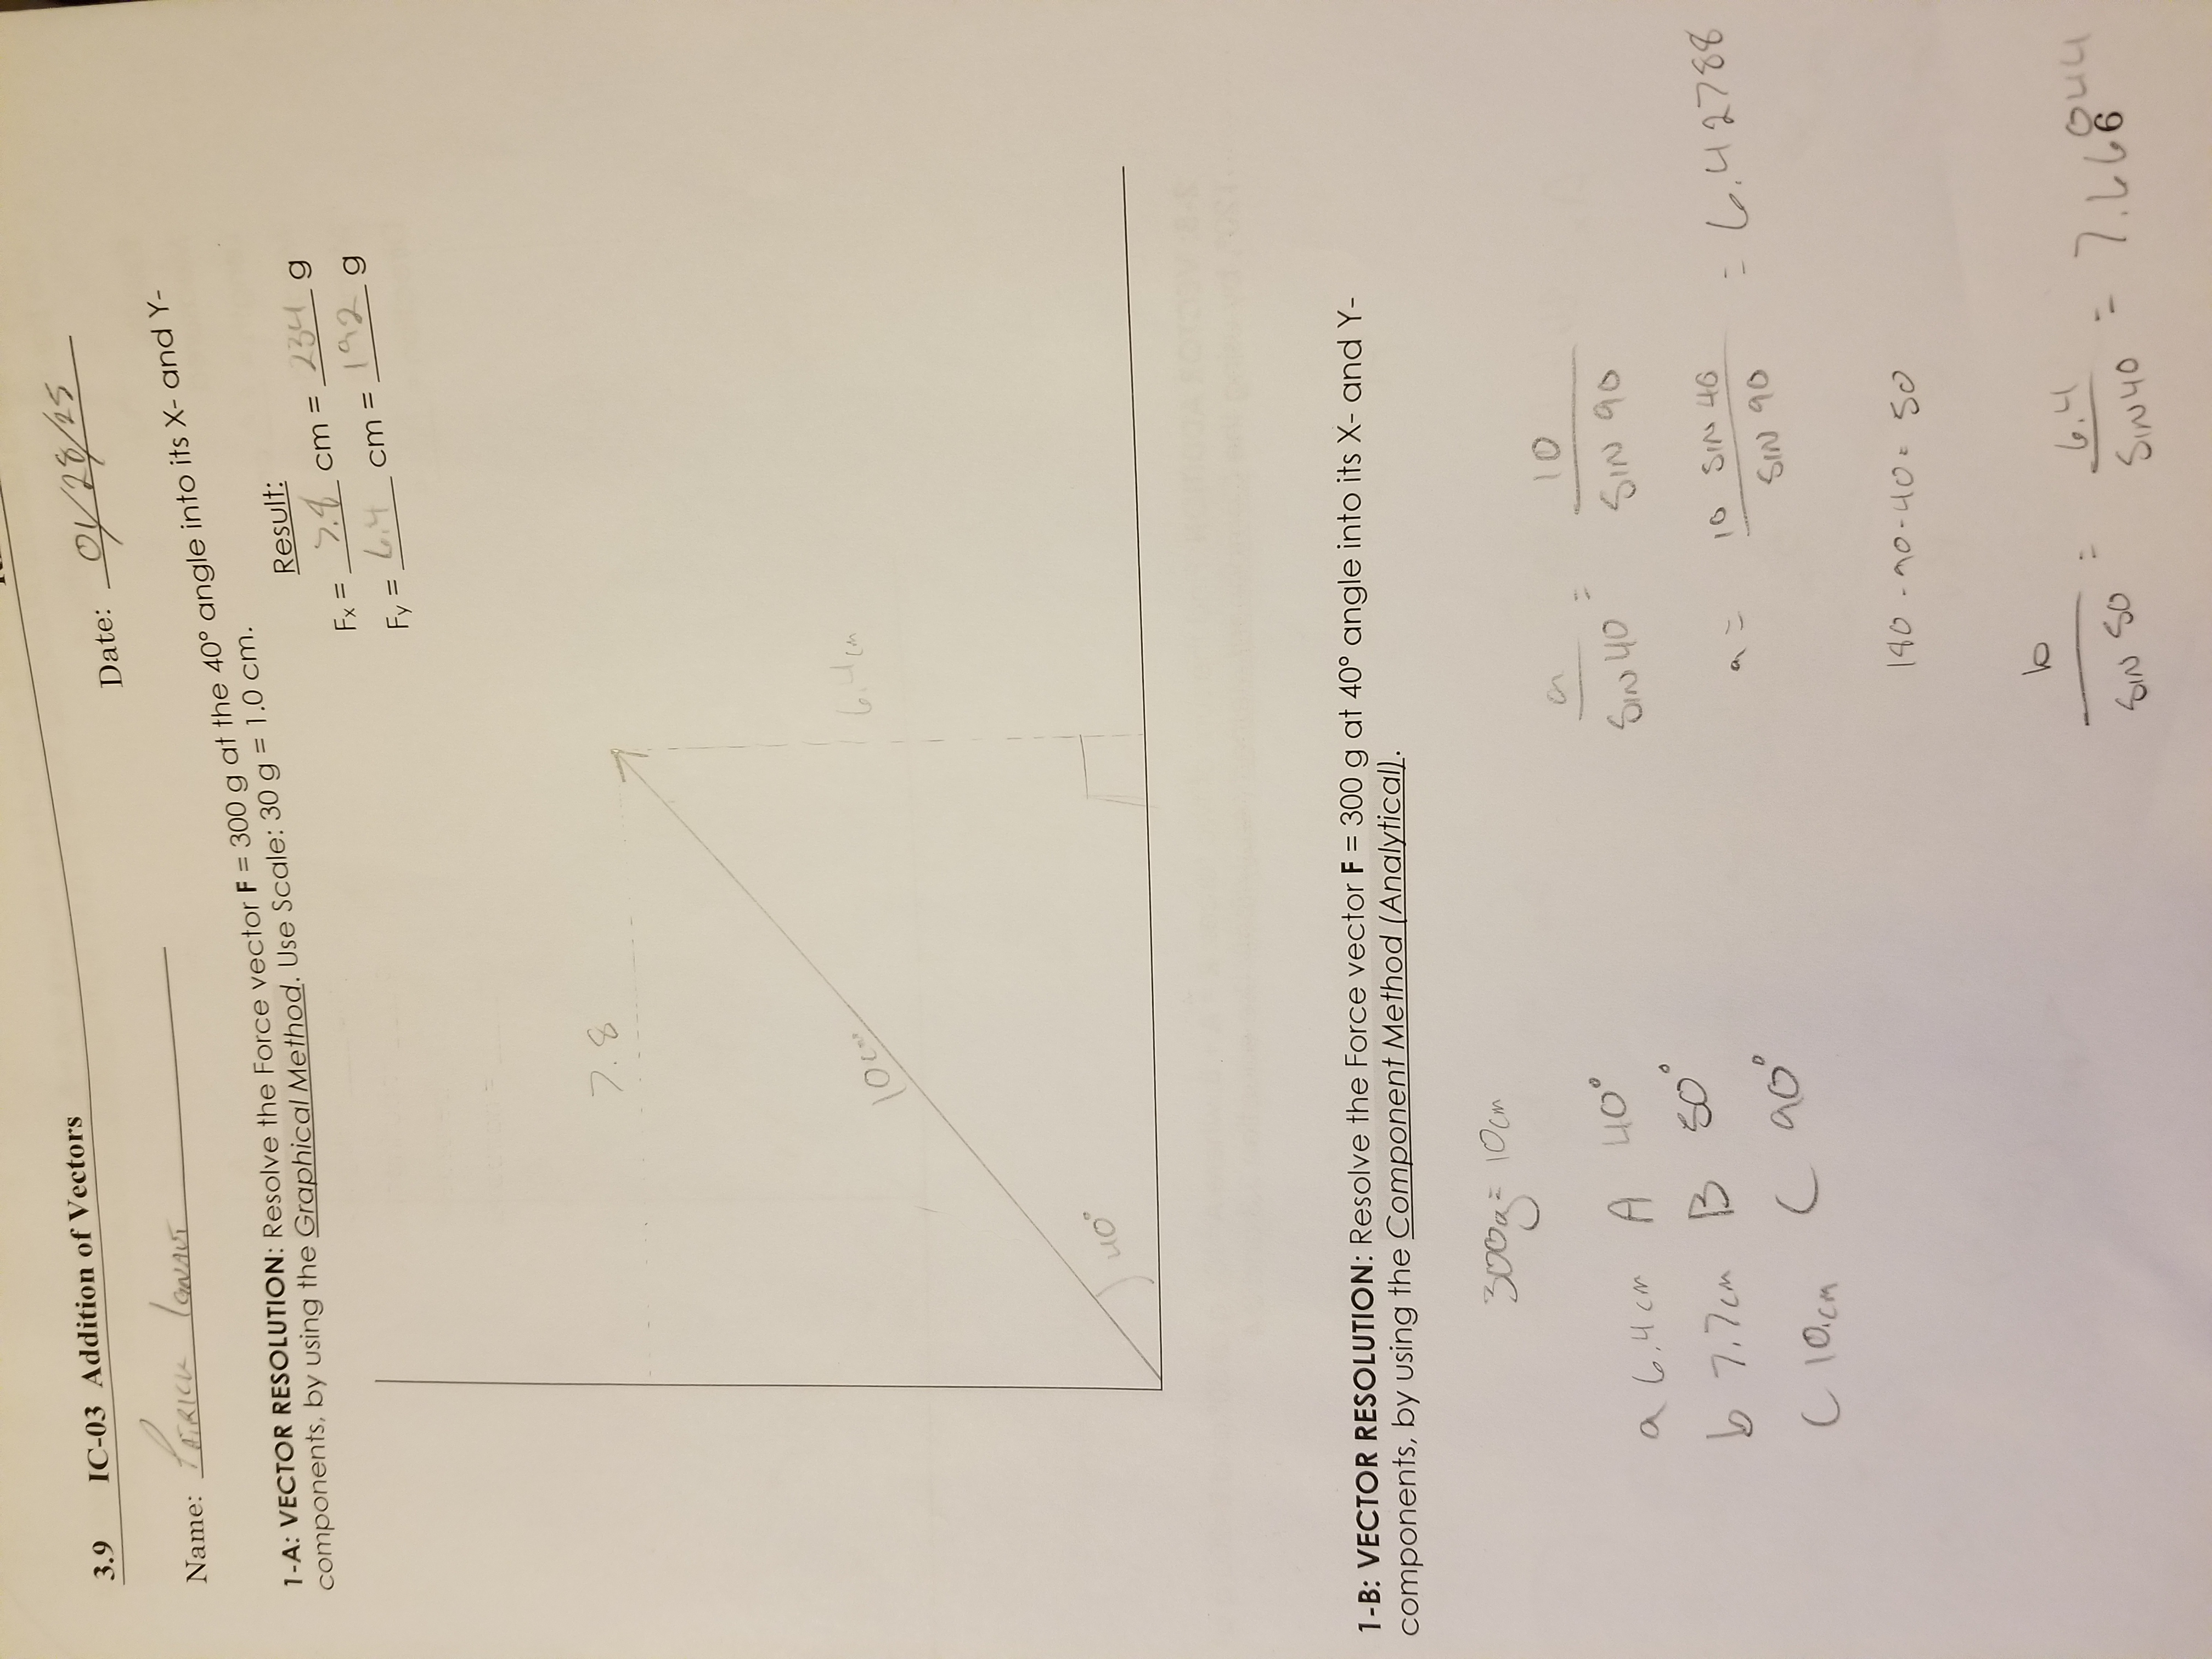 3.9 IC-03 Addition of Vectors
Date: 01/28/25
Name: PATRICK IGNAUT
1-A: VECTOR RESOLUTION: Resolve the Force vector F = 300 g at the 40° angle into its X- and Y-
components, by using the Graphical Method. Use Scale: 30 g = 1.0 cm.
Result:
Fx = 7.8 cm = 234 g
Fy = 6.4 cm = 192 g
7.8
10cm
6.4cm
40°
1-B: VECTOR RESOLUTION: Resolve the Force vector F = 300 g at 40° angle into its X- and Y-
components, by using the Component Method (Analytical).
300g = 10cm
a 6.4cm A 40°
b 7.7cm B 50°
C 10.cm C 90°
a/SIN 40 = 10/SIN 90
a = 10 SIN 40/SIN 90 = 6.42788
180 - 90 - 40 = 50
b/SIN 50 = 6.4/SIN 40 = 7.66044
6